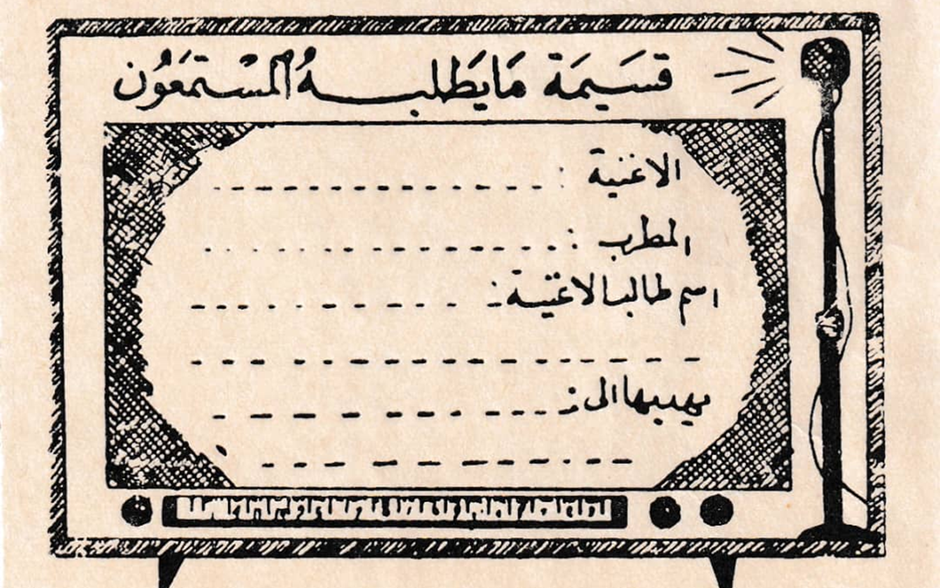 قسيمة ما يطلبه المستمعون
الاغنية :
المطرب :
اسم طالب الاغنية :
يهديها الى :